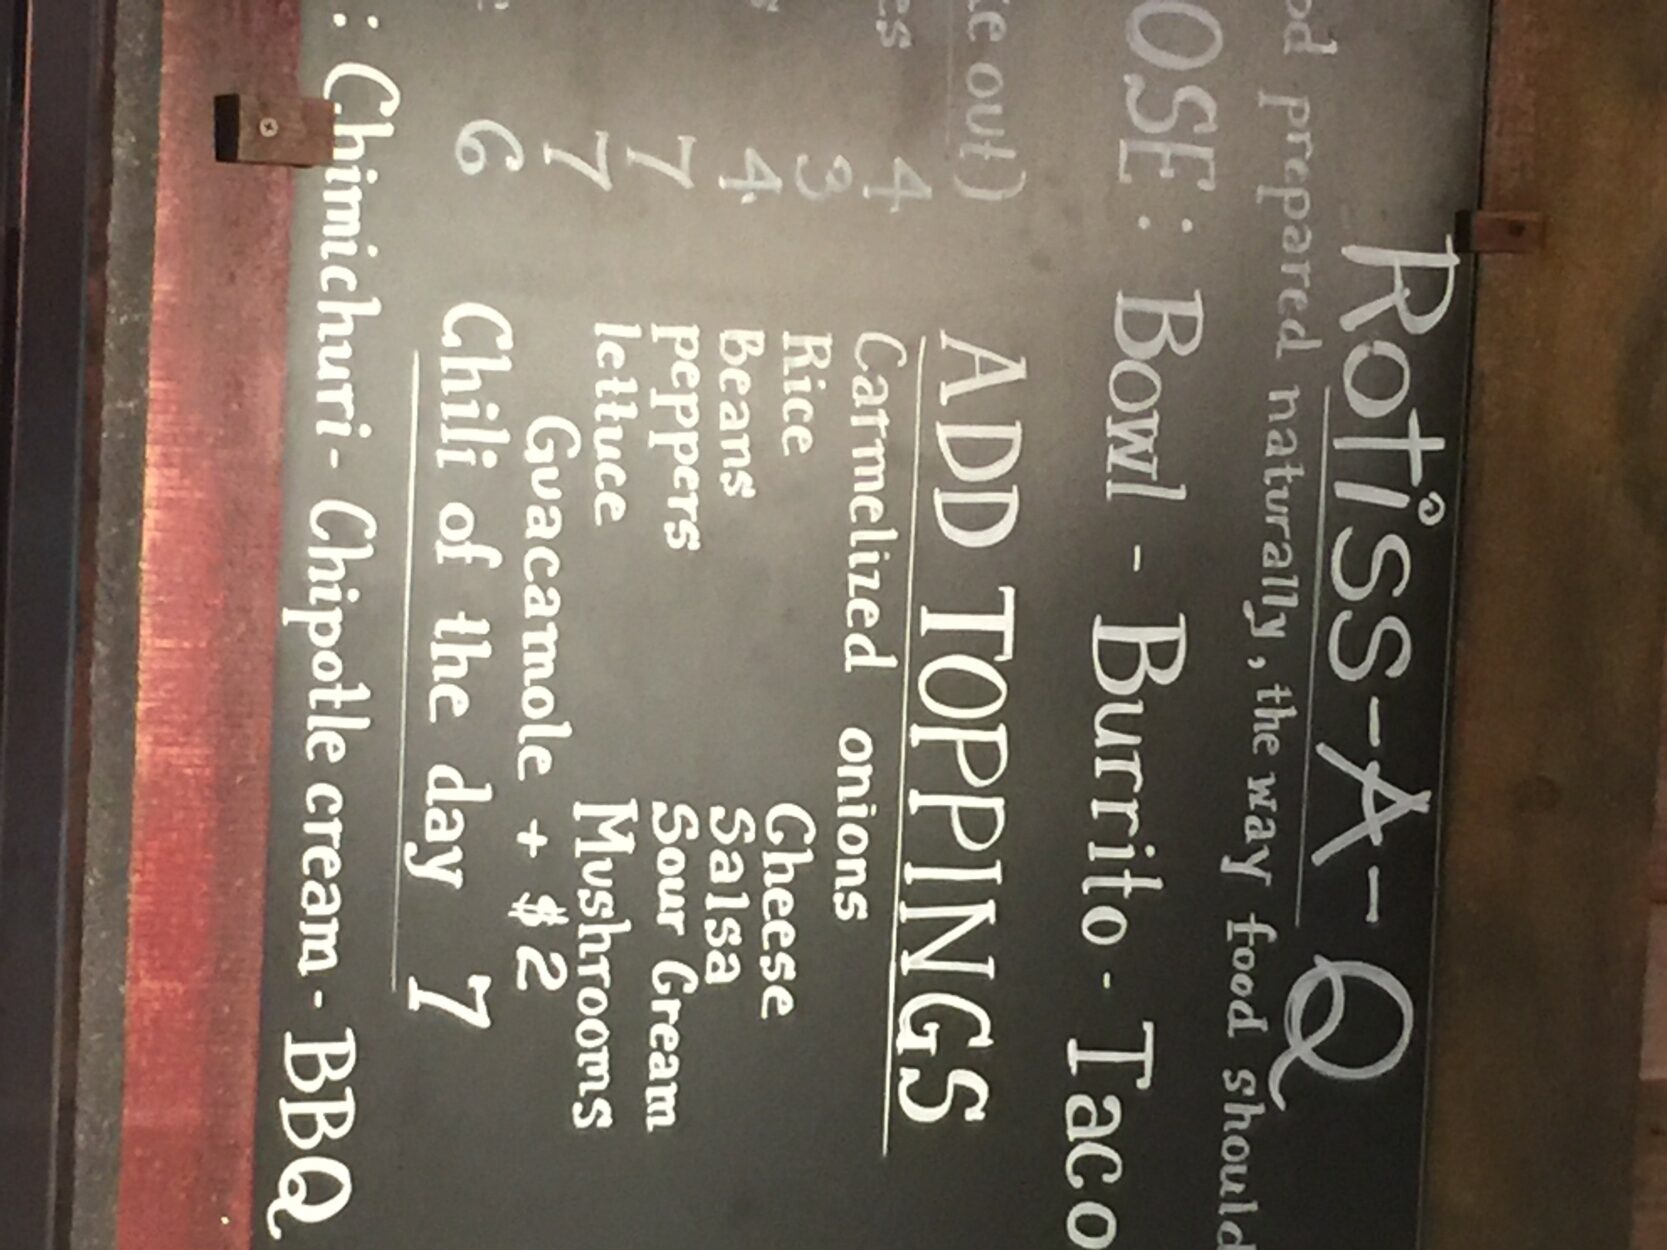 Rotiss-A-Q
prepared naturally, the way food should
OSE: Bowl - Burrito - Taco
out)
ADD TOPPINGS
4
Carmelized onions
3
Rice
Cheese
4
Beans
Salsa
7
peppers
Sour Cream
7
lettuce
Mushrooms
Guacamole + $2
6
Chili of the day 7
: Chimichuri - Chipotle cream - BBQ